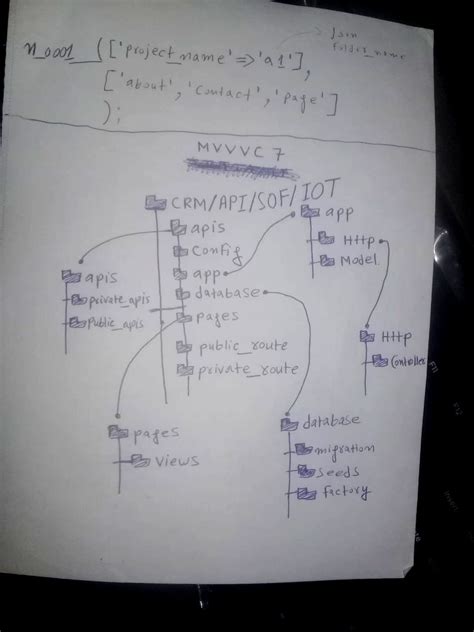 json
folder_name
n_0001 (['project_name'=>'a1'],
['about', 'contact', 'page']
);
MVVVC 7
CRM/API/SOF/IOT
apis
Config
app
database
pages
public_route
private_route
app
Http
Model
apis
private_apis
Public_apis
Http
Controller
pages
views
database
migration
seeds
factory